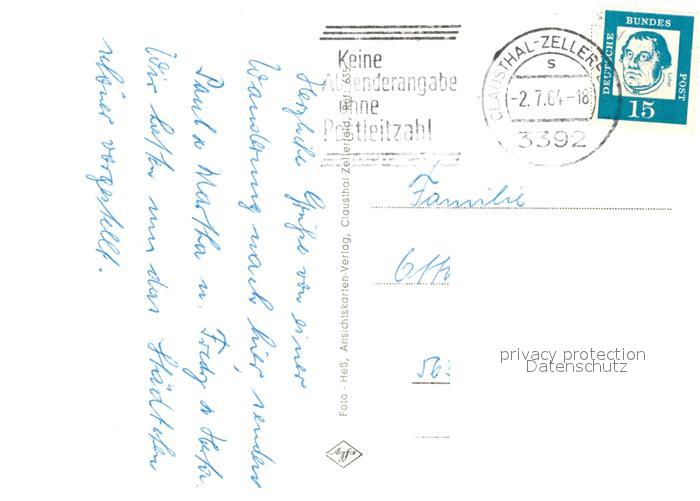 Keine
Absenderangabe
ohne
Postleitzahl
CLAUSTHAL-ZELLERF
s
-2.7.64-18
3392
DEUTSCHE BUNDES POST
15
Herzliche Grüße von einer
Wanderung nach hier, senden
Paula Martha u. Fredy
Wir hatten uns das Städtchen
schöner vorgestellt.
Foto - Heß, Ansichtskarten-Verlag, Clausthal-Zellerfeld
Familie
Otto
563
privacy protection
Datenschutz